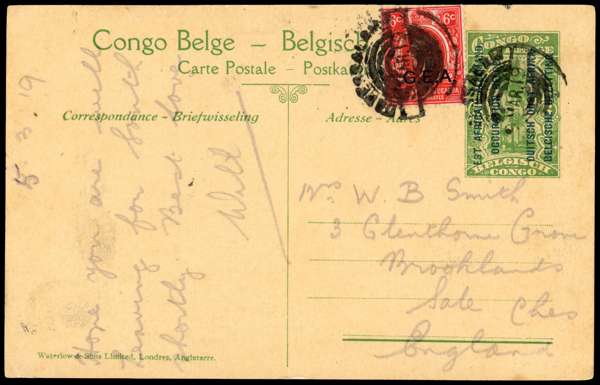 Congo Belge – Belgisch
Carte Postale – Postkaa
Correspondance - Briefwisseling
Adresse - Adres
6c 6c
G.E.A.
CONGO BELGE
EST AFRICAIN
DUITSCH OOST AFRIKA
BELGISCHE
BELGISCH
CONGO
5 3 19
Hope you are well
Leaving for South
shortly Best love
Will
Mrs W. B Smith
3 Glenthorne Grove
Brooklands
Sale Ches
England
Waterlow & Sons Limited, Londres, Angleterre.